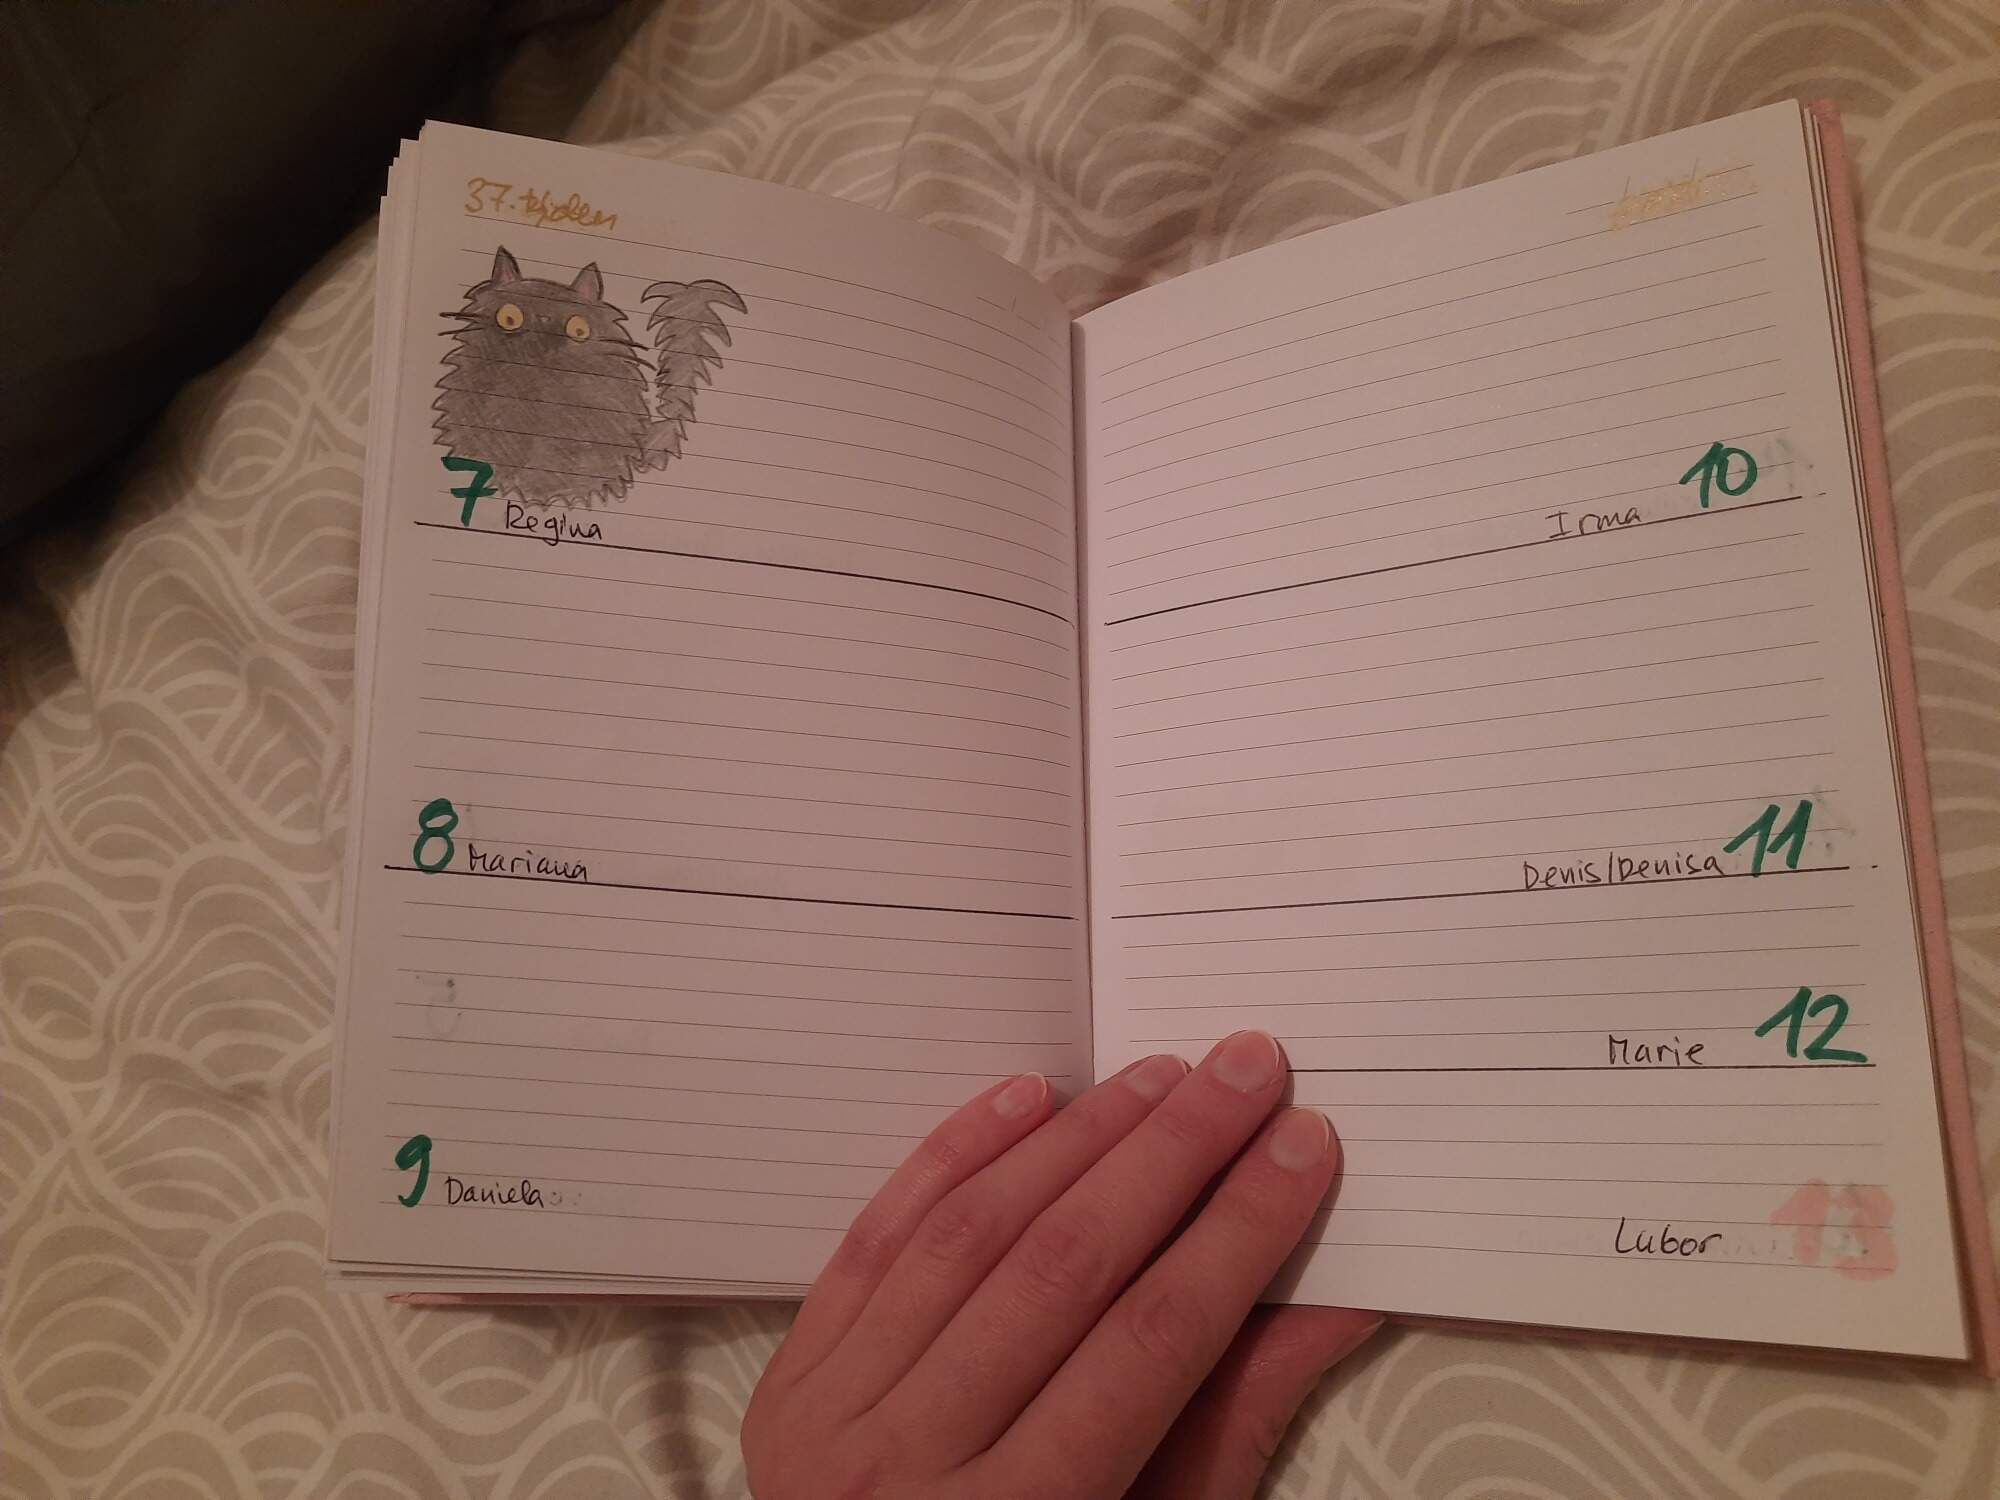 37. týden
7 Regina
8 Mariana
9 Daniela
Irma 10
Denis/Denisa 11
Marie 12
Lubor 13